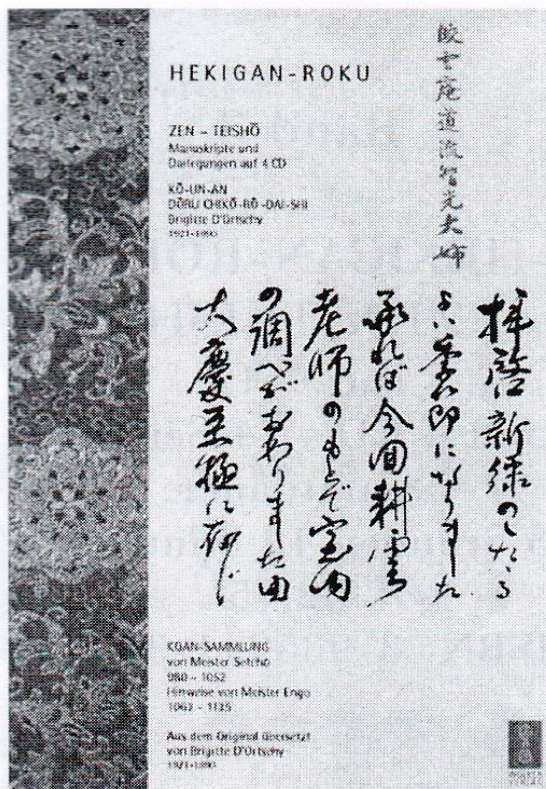 HEKIGAN-ROKU
ZEN – TEISHŌ
Manuskripte und
Darlegungen auf 4 CD
KŌ-UN-AN
DŌRU CHIKŌ-RŌ-DAI-SHI
Brigitte D'Ortschy
1921-1990
皎雲庵道流智光大姉
拝啓新緑のしたゝる
よい季節になりました
承れば今回耕雲
老師のもとで室内
の調べがおわりました由
大慶至極に存じ
KOAN-SAMMLUNG
von Meister Setcho
980 – 1052
Hinweise von Meister Engo
1063 – 1135
Aus dem Original übersetzt
von Brigitte D'Ortschy
1921-1990
VERLAG